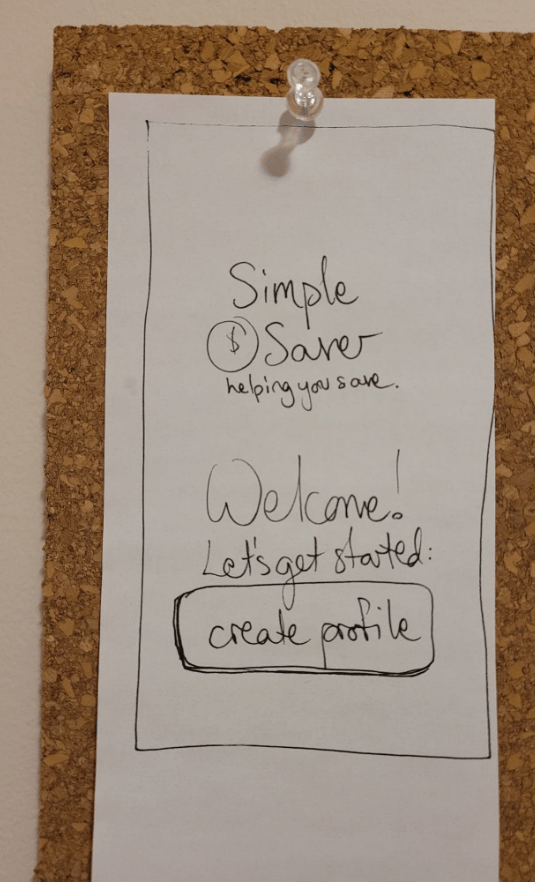 Simple
$ Saver
helping you save.
Welcome!
Let's get started:
create profile